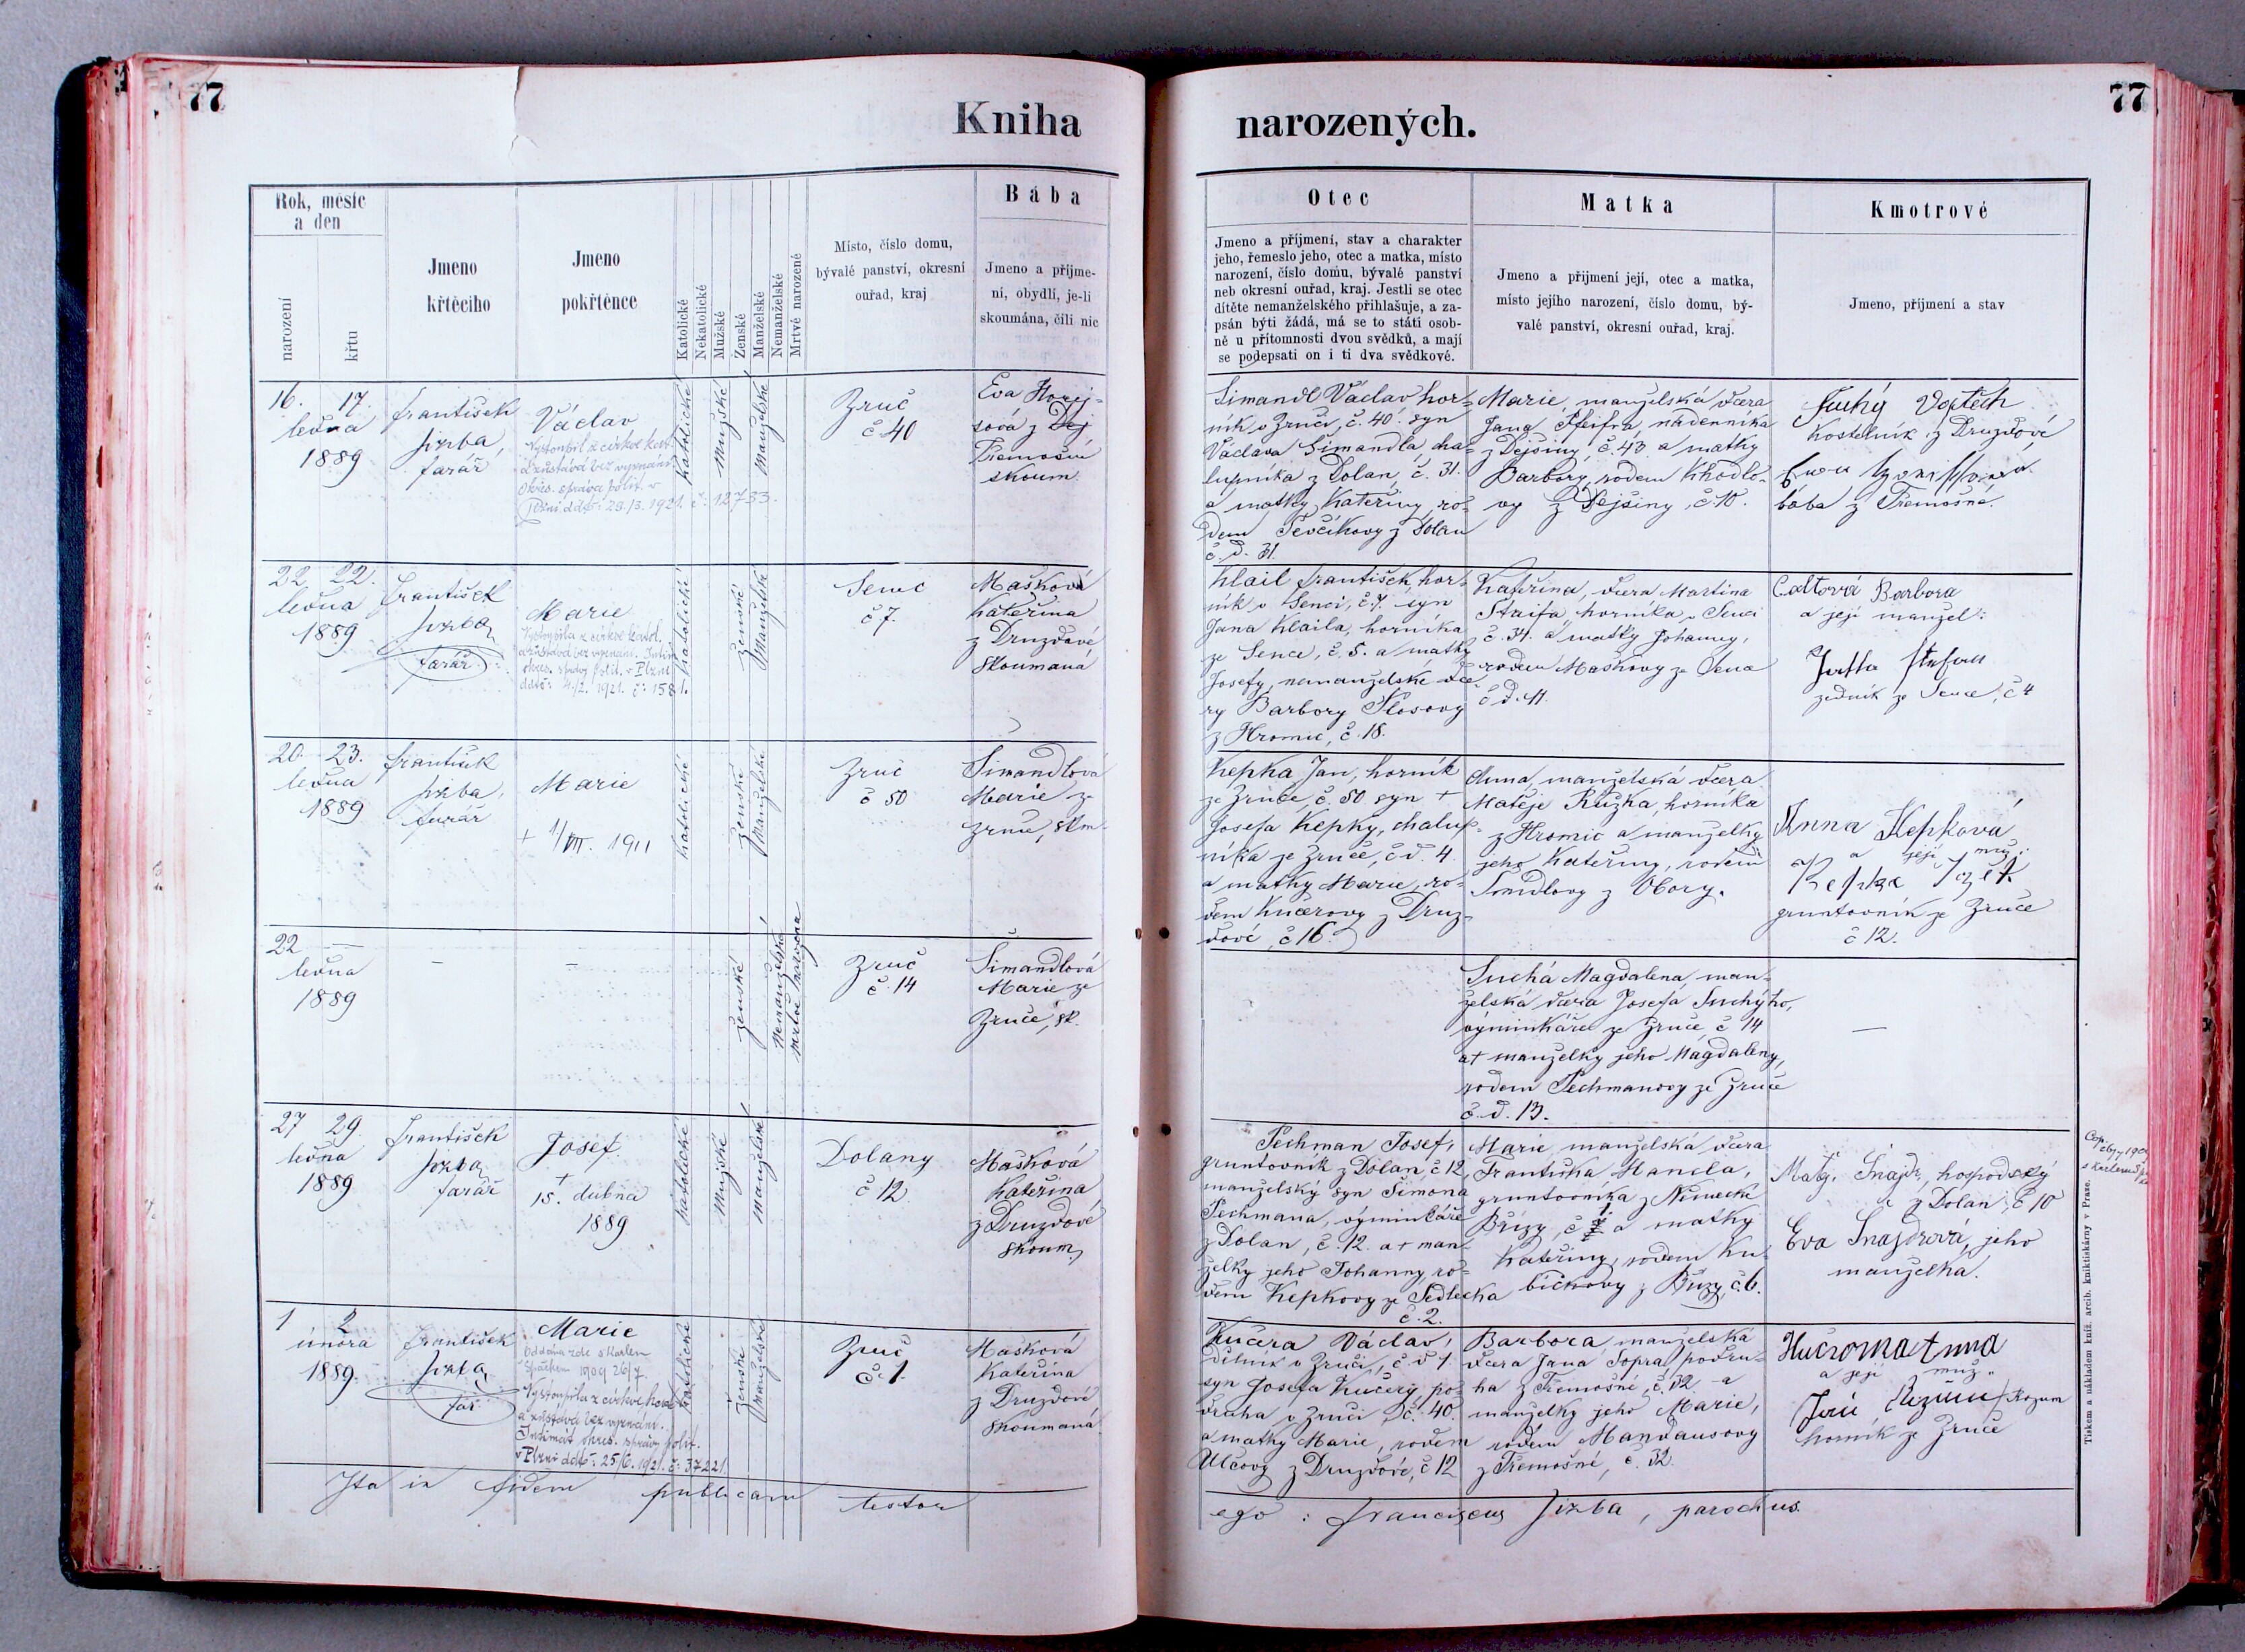 77
Kniha
Rok, měsíc
a den
narození
křtu
Jmeno
křtěcího
Jmeno
pokřtěnce
Katolické
Nekatolické
Mužské
Ženské
Manželské
Nemanželské
Mrtvě narozené
Místo, číslo domu,
bývalé panství, okresní
ouřad, kraj
Bába
Jmeno a příjme-
ní, obydlí, je-li
skoumána, čili nic
16. 17.
ledna
1889
František
Jizba,
farář
Václav
Vystoupil z církve kat.
a zůstává bez vyznání
Okres. správa polit. v
Plzni ddto: 29./3. 1921. č: 12733.
katolické
mužské
manželské
Zruč
č. 40
Eva Horej-
sová z
Třemošné
skoum.
22. 22.
ledna
1889
František
Jizba
farář
Marie
Vystoupila z církve katol.
a zůstává bez vyznání. Intim.
okres. správy polit. v Plzni
ddto: 4./2. 1921. č: 1581.
katolické
ženské
manželské
Senec
č 7.
Mašková
Kateřina
z Druzdové
skoumaná
20. 23.
ledna
1889
František
Jizba,
farář
Marie
+ 1/VII. 1911
katolické
ženské
manželské
Zruč
č 50
Šimandlová
Marie ze
Zruče, skm.
22 —
ledna
1889
—
—
ženské
nemanželské
mrtvě narozena
Zruč
č. 14
Šimandlová
Marie ze
Zruče, sk.
27 29
ledna
1889
František
Jizba,
farář
Josef.
+
15. dubna
1889
katolické
mužské
manželské
Dolany
č 12.
Mašková
Kateřina
z Druzdové
skoum.
1 2
února
1889.
František
Jizba,
far
Marie
Oddána zde s Karlem
1909 26/7.
Vystoupila z církve katol.
a zůstává bez vyznání.
Intimát okres. správy polit.
v Plzni ddto: 25/6. 1921. č: 37221.
katolické
ženské
manželské
Zruč
č. 1.
Mašková
Kateřina
z Druzdové
skoumaná.
Ita in fidem publicam testor
77
narozených.
Otec
Jmeno a příjmení, stav a charakter
jeho, řemeslo jeho, otec a matka, místo
narození, číslo domu, bývalé panství
neb okresní ouřad, kraj. Jestli se otec
dítěte nemanželského přihlašuje, a za-
psán býti žádá, má se to státi osob-
ně u přítomnosti dvou svědků, a mají
se podepsati on i ti dva svědkové.
Matka
Jmeno a příjmení její, otec a matka,
místo jejího narození, číslo domu, bý-
valé panství, okresní ouřad, kraj.
Kmotrové
Jmeno, příjmení a stav
Šimandl Václav hor-
ník v Zruči, č. 40. syn
Václava Šimandla, cha-
lupníka z Dolan, č. 31.
a matky Kateřiny, ro-
dem Ševčíkovy z Dolan
č. d. 31.
Marie, manželská dcera
Jana Pfeifra, nádenníka
z Dejšiny, č. 43. a matky
Barbory, rodem Khodlo-
vy z Dejšiny, č. 10.
Suchý Vojtěch
kostelník z Druzdové
bába z Třemošné.
Klail František, hor-
ník v Senci, č. 7. syn
Jana Klaila, horníka
ze Sence, č. 5. a matky
Josefy, nemanželské dce-
ry Barbory Klosovy
z Hromic, č. 18.
Kateřina, dcera Martina
Straifa, horníka v Senci
č. 34. a matky Johanny,
rodem Maškovy ze Sence
č. d. 11.
Caltová Barbora
a její manžel:
zedník ze Sence, č 4
Kepka Jan, horník
ze Zruče, č. 50 syn +
Josefa Kepky, chalup-
níka ze Zruče, č d. 4.
a matky Marie, ro-
dem Kučerovy z Druz-
dové, č 16.
Anna, manželská dcera
Matěje Růžka, horníka
z Hromic a manželky
jeho Kateřiny, rodem
Šmídlovy z Obory.
Anna Kepková
a její muž:
Kepka Jozef.
gruntovník ze Zruče
č 12.
Suchá Magdalena, man-
želská dcera Josefa Suchýho,
výminkáře ze Zruče č 14
a + manželky jeho Magdaleny,
rodem Pechmanovy ze Zruče
č. d. 13.
—
Pechman Josef,
gruntovník z Dolan, č 12,
manželský syn Šimona
Pechmana, výminkáře
z Dolan, č. 12. a + man-
želky jeho Johanny, ro-
dem Kepkovy ze Sedlecka
č. 2.
Marie manželská dcera
Františka Hanela,
gruntovníka z Německé
Břízy, č 1 a matky
Kateřiny, rodem Ku-
bíčkovy z Břízy, č. 6.
Matj. Šnajdr, hospodský
z Dolan, č 10
Eva Šnajdrová, jeho
manželka.
Kučera Václav,
dělník v Zruči, č. d 1.
syn Josefa Kučery, po-
druha v Zruči, č. 40.
a matky Marie, rodem
Ulčovy z Druzdové, č 12
Barbora, manželská
dcera Jana Šopra, podru-
ha z Třemošné, č. 32 a
manželky jeho Marie,
rodem Mandausovy
z Třemošné, č. 32.
a její muž:
Rozum
horník ze Zruče
ego: Franciscus Jizba, parochus.
Tiskem a nákladem kníž. arcib. knihtiskárny v Praze.